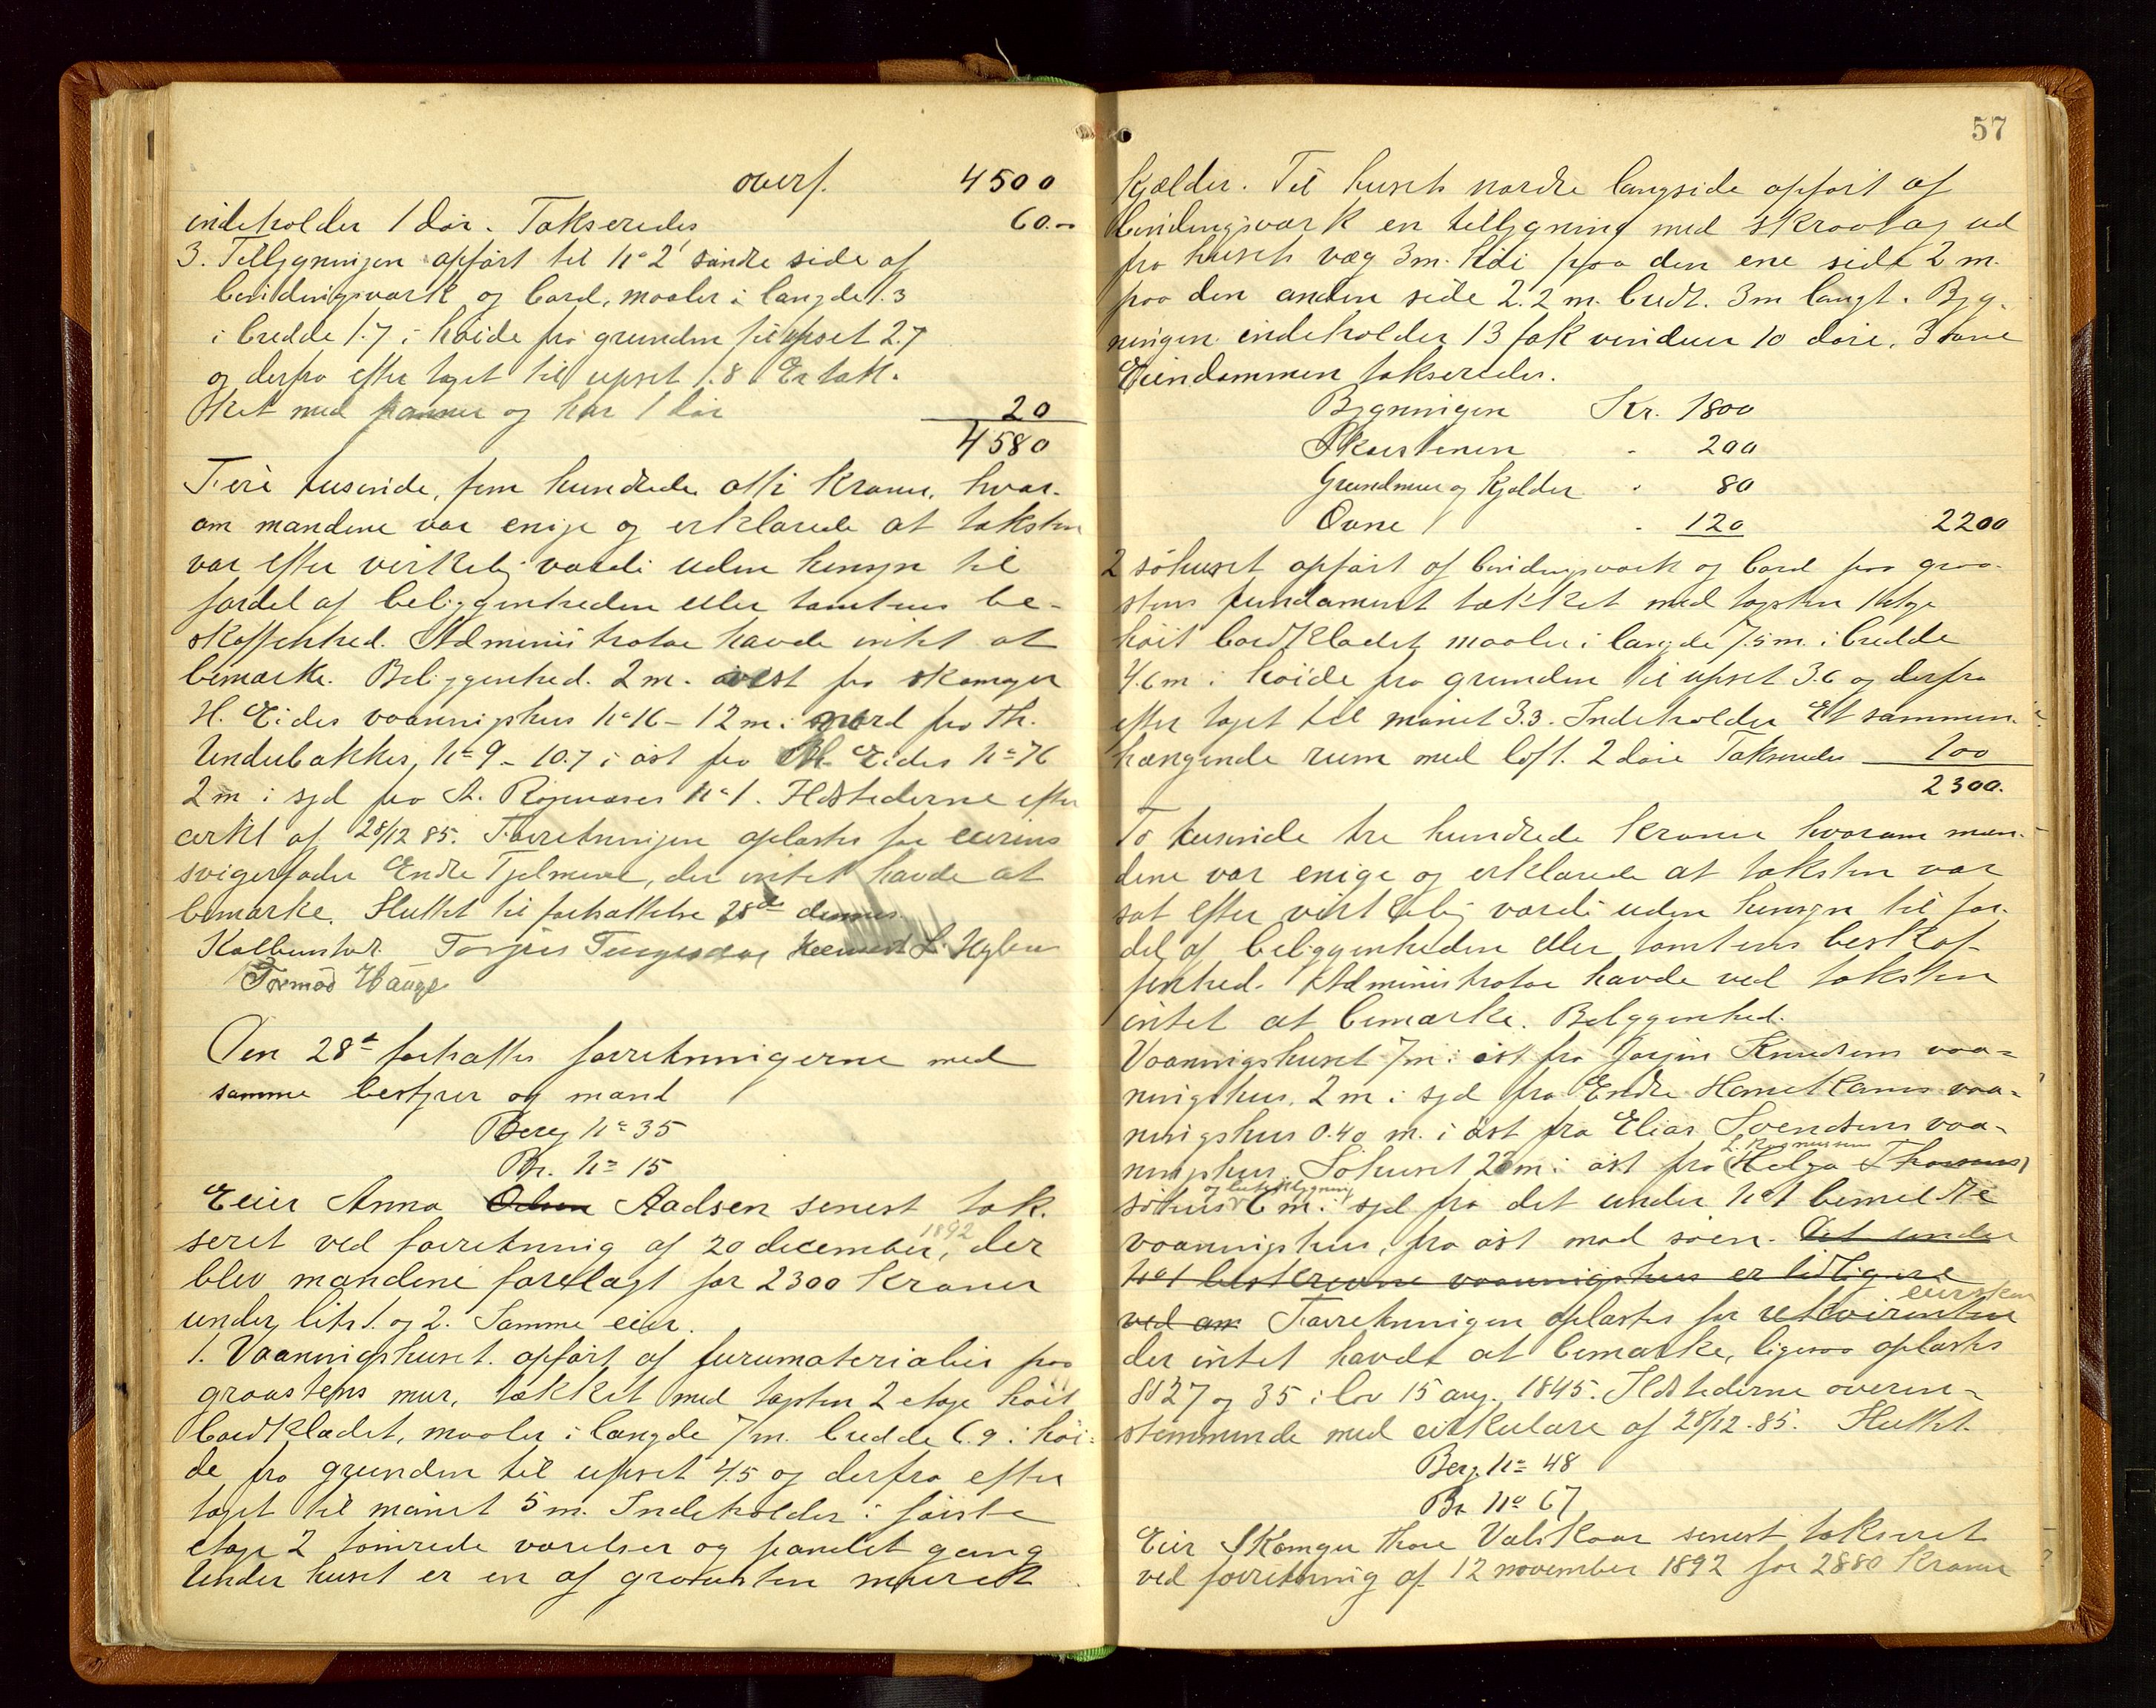 overf. 4500
indeholder 1 dør. Takseredes 60.-
3. Tilbygningen opført til No 2 søndre side af
bindingsværk og bord, maaler i længde 1.3
i bredde 1.7 i høide fra grunden til upset 2.7
og derfra efter taget til upset 1.8 Er tæk-
ket med panner og har 1 dør 20
4580
Fire tusinde, fem hundrede otti kroner, hvor-
om mændene var enige og erklærede at taksten
var efter virkelig værdi uden hensyn til
fordel af beliggenheden eller tomtens be-
skaffenhed. Administrator havde intet at
bemærke. Beliggenhed. 2 m. øst fra skomager
H. Eides vaaningshus No 16 - 12 m. i nord fra Th.
Underbakkes, No 9 - 10.7 i øst fra Eides No 76
2 m i syd fra A. Røgenæses No 1. Ildstederne efter
cirkl af 28/12 85. Forretningen oplæstes for eierens
svigerfader Endre Tjelmene, der intet havde at
bemærke. Sluttet til fortsættelse 28de dennes.
Kolbenstvt. Torjus Tungesvig L. Nylen
Tormod Hauge
Den 28de fortsattes forretningerne med
samme bestyrer og mænd
Berg No 35
Br. No 15
Eier Anna Olsen Aadsen senest tak-
seret ved forretning af 20 december 1892, der
blev mændene forelagt for 2300 kroner
under litr 1. og 2. Samme eier.
1. Vaaningshuset. opført af furumaterialier paa
graastens mur, tækket med tagsten 2 etage høit
bordklædet, maaler i længde 7 m. bredde 6.9 i høi-
de fra grunden til upset 4.5 og derfra efter
taget til mønet 5 m. Indeholder i første
etage 2 tømrede værelser og panelet gang
Under huset er en af graasten muret
57
kjælder. Til husets nordre langside opført af
bindingsværk en tilbygning med skraatag ud
fra husets væg 3 m. høi paa den ene side 2 m.
paa den anden side 2.2 m. bredt. 3 m langt. Byg-
ningen indeholder 13 fak vinduer 10 døre, 3 ovne
Eiendommen takseredes.
Bygningen Kr. 1800
Skorstenen - 200
Grundmur og kjælder - 80
Ovne - 120 2200
2 søhuset opført af bindingsværk og bord paa graa-
stens fundament tækket med tagsten 1 etage
høit bordklædet maaler i længde 7.5 m. i bredde
4.6 m i høide fra grunden til upset 3.6 og derfra
efter taget til mønet 3.3. Indeholder Et sammen-
hængende rum med loft. 2 døre Takseredes 100
2300.
To tusinde tre hundrede kroner hvorom mæn-
dene var enige og erklærede at taksten var
sat efter virkelig værdi uden hensyn til for-
del af beliggenheden eller tomtens beskaf-
fenhed. Administrator havde ved taksten
intet at bemærke. Beliggenhed.
Vaaningshuset 7 m. i øst fra Jørgen Knudsens vaa-
ningshus, 2 m i syd fra Endre Hametlands vaa-
ningshus 0.40 m. i øst fra Elias Svendsens vaa-
ningshus. Søhuset 22 m. i øst fra L. Rasmussens Helga Thorsens
søhus og 6 m. i syd fra det under No 1 bemeldte
vaaningshus, fra øst mod søen. Det under
No 1 beskrevne vaaningshus er lidtigere
ved an Forretningen oplæstes for rekvirenten eiersken
der intet havde at bemærke, ligesaa oplæstes
§§ 27 og 35 i lov 15 aug. 1845. Ildstederne overen-
stemmende med cirkulære af 28/12.85. Sluttet.
Berg. No 48
Br No 67
Eier Skomager Thore Valskaar senest takseret
ved forretning af 12 november 1892 for 2880 kroner